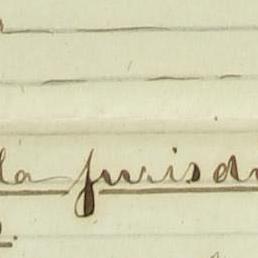 la jurisd